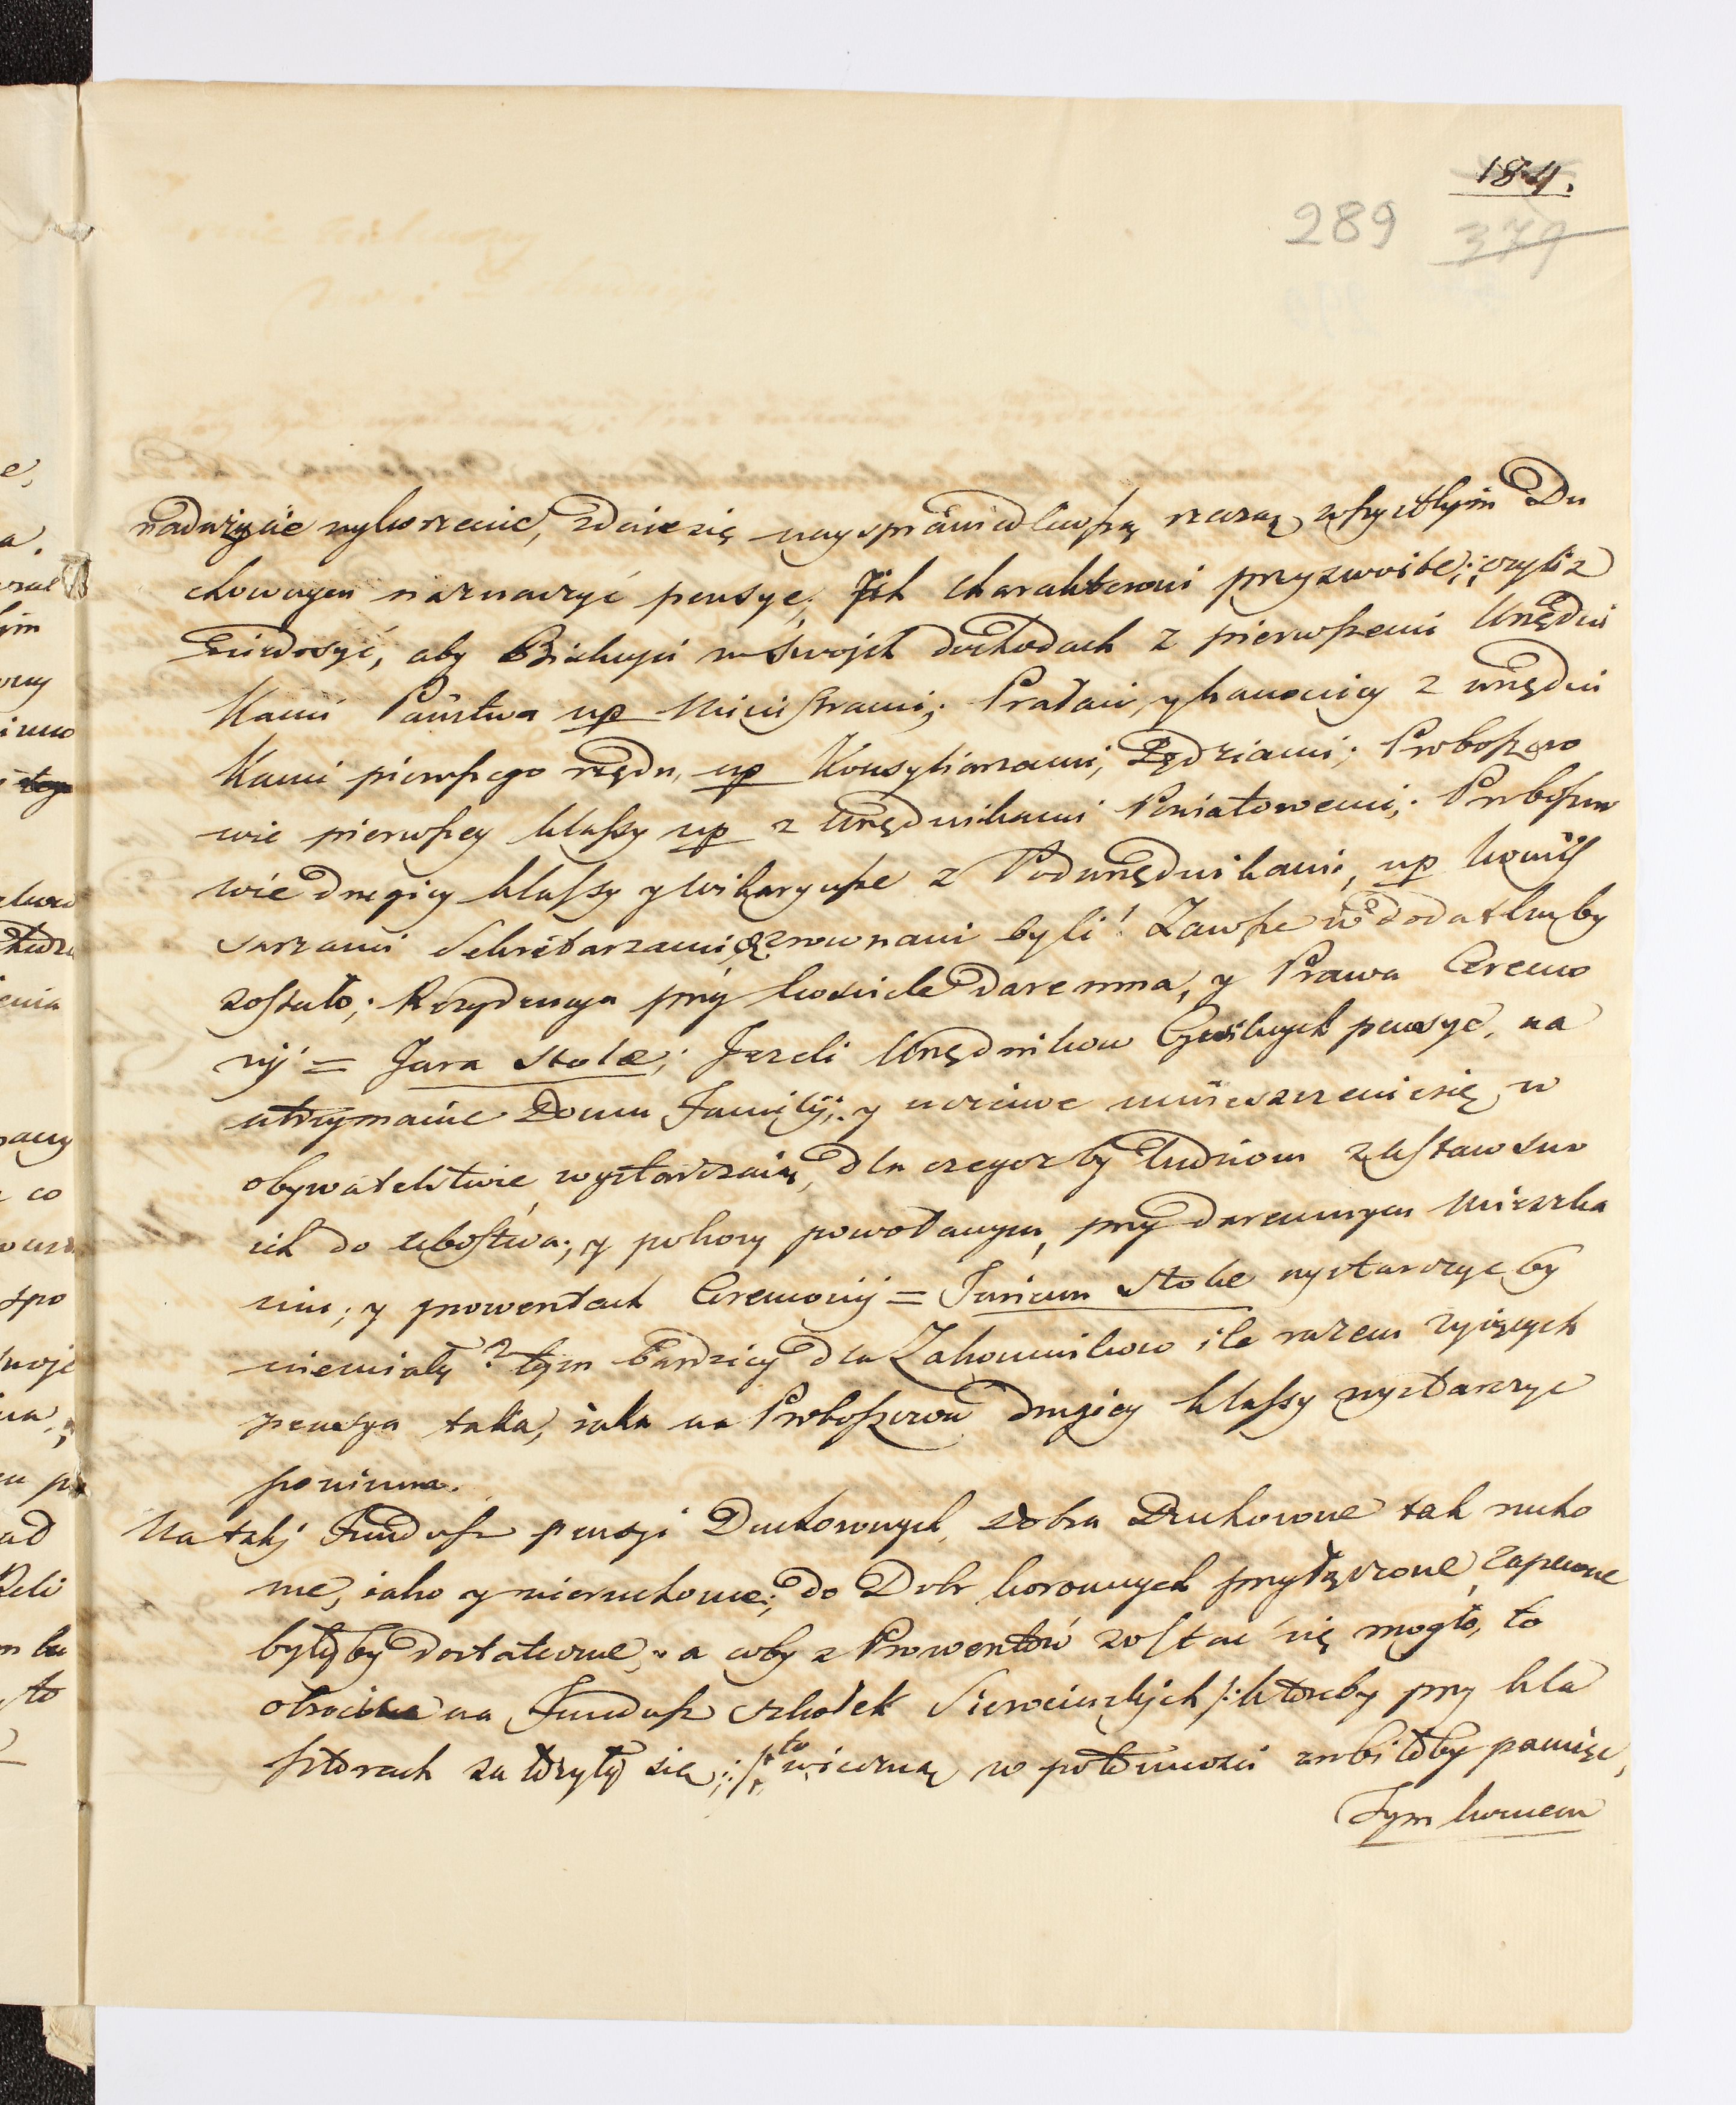 184.
289 379
nadużycie wykorzenić, zdaie się nayspráwiedliwszą rzeczą, wszystkim Du
chownym naznaczyć pensye, Jch charakterowi przyzwoite; czyliż
niedosyć, aby Biskupi w swojch dochodach z pierwszemi Urzędni
kami Państwa np Ministrami; Prałaci, y kanonicy z urzędni
kami pierwszego rzędu, np Konsyliarzami, Sędziami; Proboszczo
wie pierwszey klassy np z Urzędnikami Powiatowemi; Proboszczo
wie drugiey klassy y wikaryusze z Podurzędnikami, np Kommis
sarzami Sekretarzami zrownani byli! Zawsze w dodatku by
zostało; Rezydencya przy kościele daremna, y Prawa Ceremo
nij = Jura Stolæ; Jezeli Urzędnikow Cywilnych pensye, na
utrzymanie Domu Familij; y uczciwe umieszczenie się w
obywatelstwie wystarczaią, dla czegoz by ludziom z ustaw swo
ich do ubostwa; y pokory powołanym, przy daremnym mieszka
niu; y prowentach Ceremonij = Jurium Stolæ wystarczyc by
niemiały? tym bardziey dla Zakonnikow ile razem zyiących
pensya taka, iaka na Proboszcza drugiey klassy wystarczyc
powinna.
Na taki Fundusz pensyi Duchownych, dobra Duchowne tak rucho
me, iako y nieruchome; do Dobr koronnych przyłączone, zapewne
byłyby dostateczne; a coby z Prowentów zostać się mogło, to
obrocone na Fundusz szkołek Sierocinskich /: ktoreby przy kla
sztorach założyły się; :/ to wieczną w potomności zrobiłoby pamięc,
Tym koncem